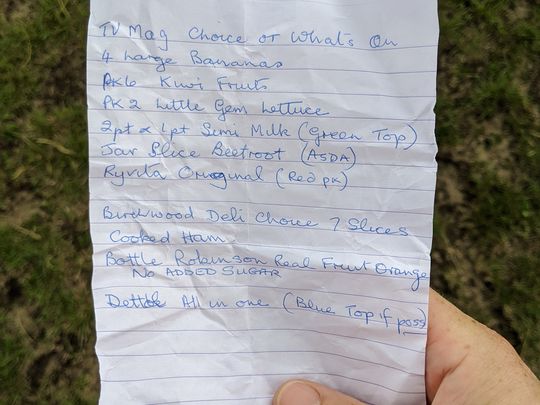 TV Mag Choice or What's On
4 Large Bananas
PK6 Kiwi Fruits
PK 2 Little Gem Lettuce
2pt & 1pt Simi Milk (Green Top)
Jar Slice Beetroot (ASDA)
Ryvita Original (Red pk)
Birchwood Deli Choice 7 Slices
Cooked Ham
Bottle Robinson Real Fruit Orange
NO ADDED SUGAR
Dettol All in one (Blue Top if poss)